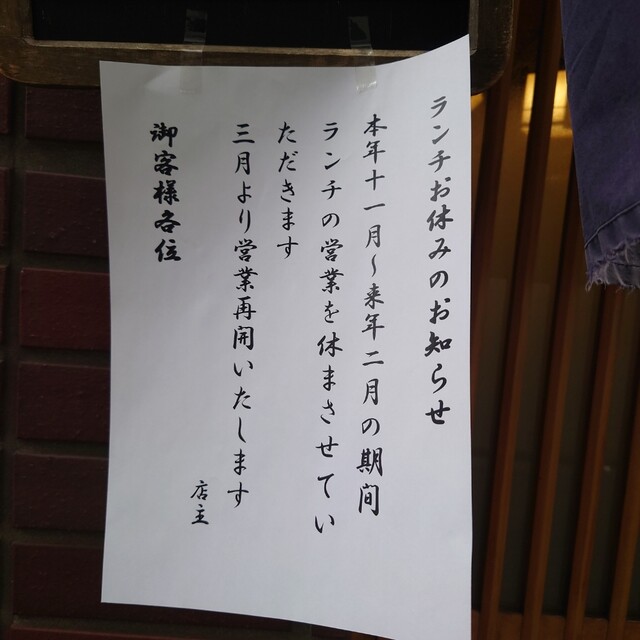 ランチお休みのお知らせ
本年十一月～来年二月の期間
ランチの営業を休まさせてい
ただきます
三月より営業再開いたします
店主
御客様各位